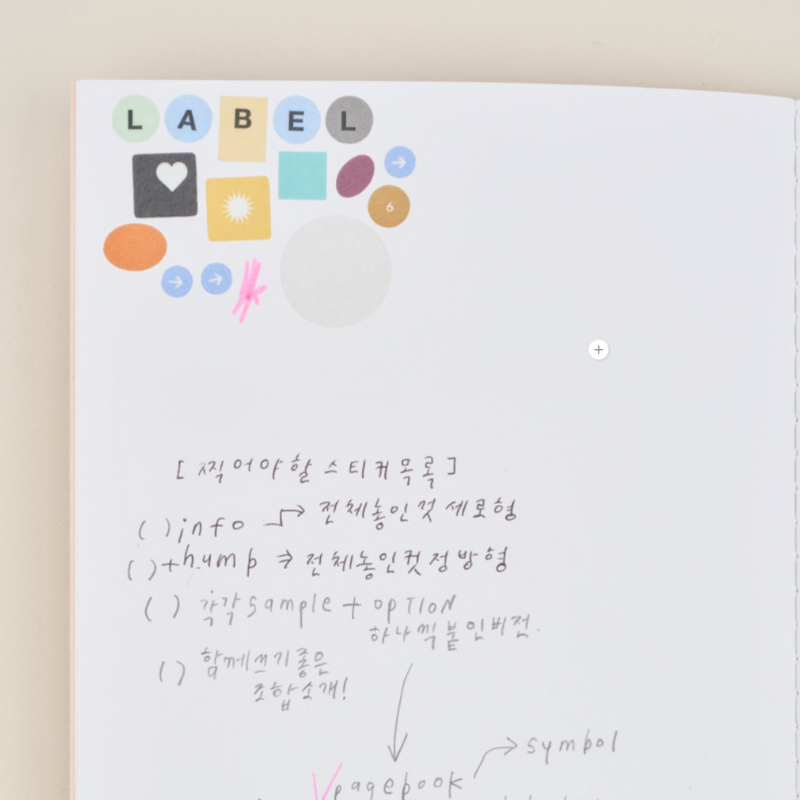 LABEL
6
[찍어야할 스티커목록]
( ) info → 전체놓인것 세로형
( ) thumb ⇒ 전체놓인컷 정방형
( ) 각각 sample + OPTION
하나씩 붙인버전.
( ) 함께쓰기좋은
조합소개!
symbol
pagebook